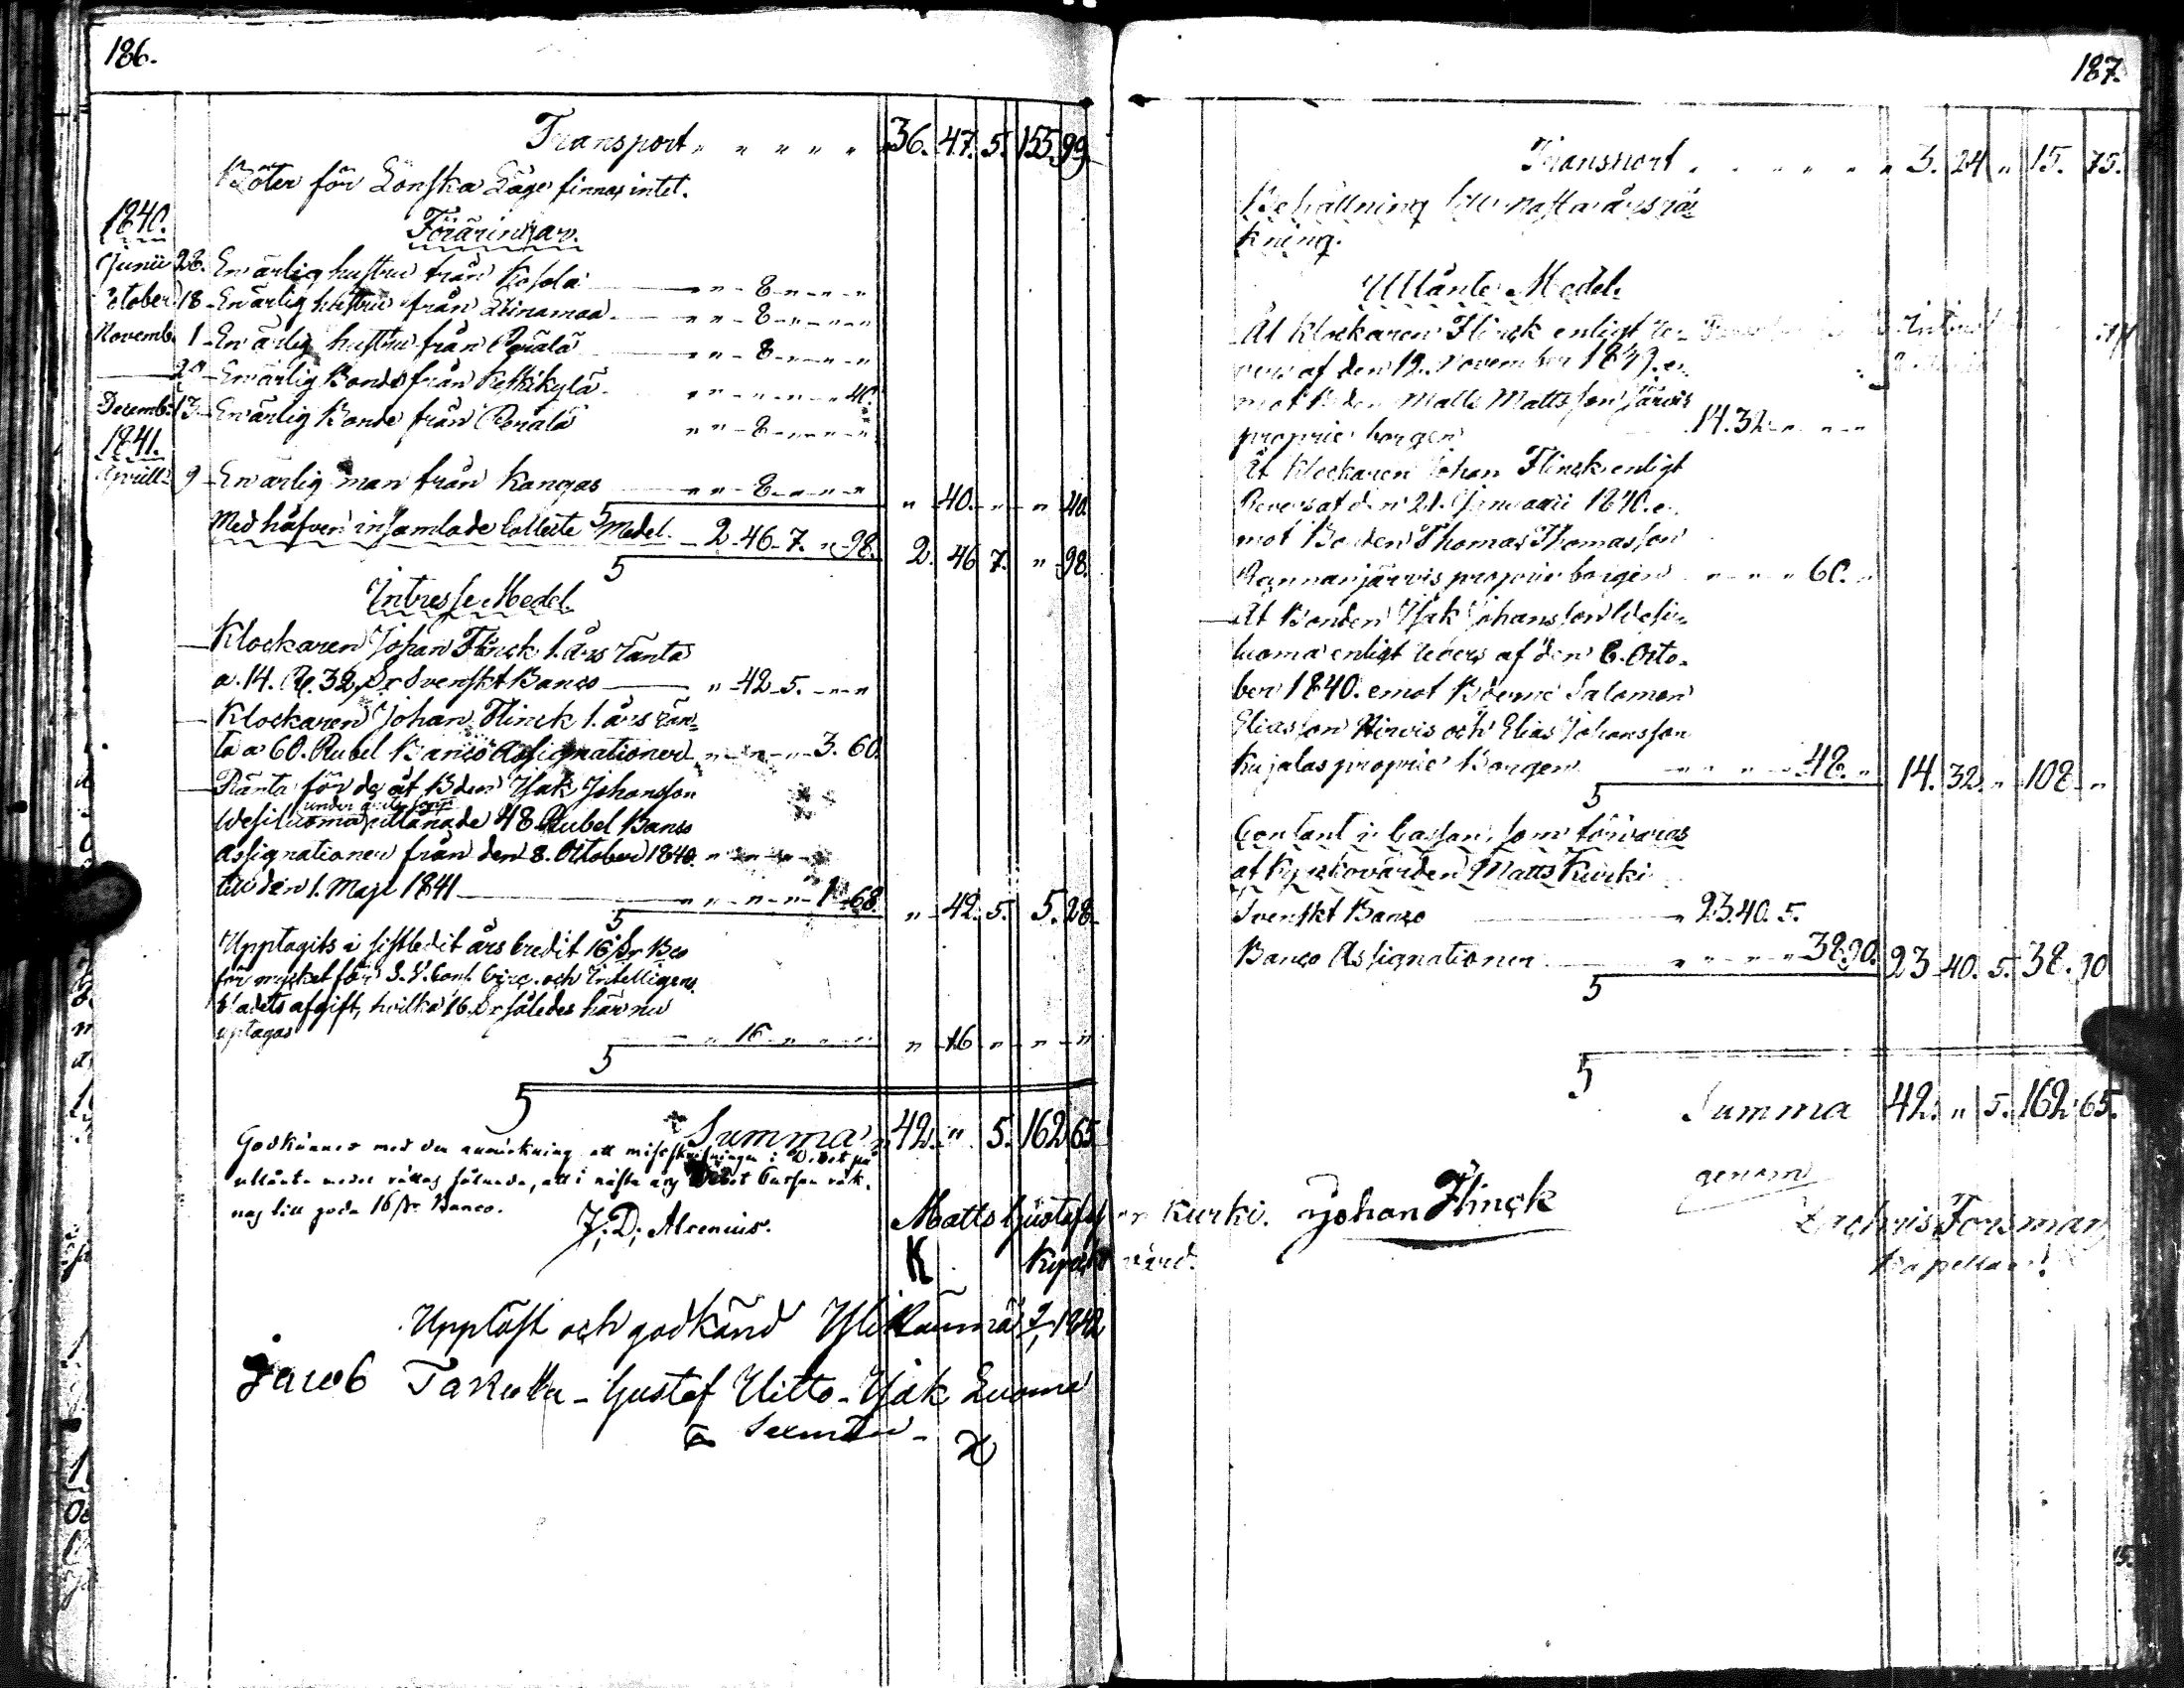 186.
Transport „ „ „ „ „ 36. 47. 5. 155. 99.
Böter för Lönska Läger finnas intet.
1840.
Föräringar.
Junii 28. En ärlig hustru från Kosola „ „ 8 „ „ „
October 18 En ärlig hustru från Liinamaa „ „ 8 „ „ „
Novemb. 1 En ärlig hustru från Perälä „ „ 8 „ „ „
29 En ärlig Bonde från Keskikylä „ „ „ „ „ 40.
Decemb. 13 En ärlig Bonde från Perälä „ „ 8 „ „ „
1841.
Aprill 9 En ärlig man från Kangas „ „ 8 „ „ „ „ 40. „ „ 40.
Med håfven insamlade Collecte Medel. 2. 46. 7. „ 98. 2. 46 7. „ 98.
Intresse Medel.
Klockaren Johan Flinck 1. års ränta
a. 14. R. 32 sr Svenskt Banco „ 42 5. „ „
Klockaren Johan Flinck 1. års rän-
ta a 60. Rubel Banco Assignationer „ „ „ 3. 60.
Ränta för de åt Bden Isak Johansson
Wesiluoma utlånade 48 Rubel Banco
Assignationer från den 8. October 1840. „ „ „
till den 1. Maji 1841 „ „ „ „ 1. 68. „ 42. 5. 5. 28.
Upptagits i sistledit års Credit 16 sr Bco
för mycket för Circ. och Intelligens
bladets afgift, hvilka 16 sr således här nu
uptagas „ 16 „ „ „ „ 16 „ „ „
Summa 42. „ 5. 162. 65.
Godkännes med den anmärkning att misskrifningen i Debet på
utlånte medel rättas sålunda, att i nästa års Debet Cassan räk-
nas till godo 16 sr Banco.
J. D. Alcenius.
Matts Gustafsson Kurki.
K Kyrkovärd.
Uppläst och godkänd Ylikaunna 1842
Jacob Takulla - Gustaf Uitto - Isak Luoma
Sexmän -
187.
Transport „ „ „ „ „ 3. 24 „ 15. 75.
Behållning till nästa års rä-
kning.
Utlånte Medel.
Åt Klockaren Flinck enligt re-
vers af den 12. November 1839. e-
mot Bden Matts Mattsson Järvis
proprie borgen 14. 32 „ „ „
Åt Klockaren Johan Flinck enligt
Revers af den 21. Januarii 1840. e-
mot Bonden Thomas Thomasson
Rannanjärvis proprie borgen „ „ „ 60. „
Åt Bonden Isak Johansson Wesi-
luoma enligt revers af den 8. Octo-
ber 1840. emot Bderne Salomon
Eliasson Hirvis och Elias Johansson
Kujalas proprie Borgen „ „ „ 48. „ 14. 32. „ 108 „
Contant i Cassan, som förvaras
af Kyrkovärden Matts Kurki
Svenskt Banco „ 23. 40. 5.
Banco Assignationer „ „ „ „ 38. 90. 23 40. 5. 38. 90
Summa 42. „ 5. 162. 65.
Johan Flinck
genom
Zachris Forsman
Kapellan